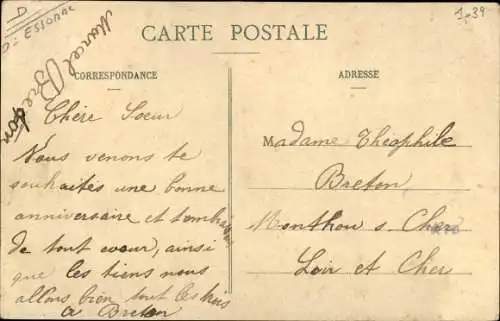 D
D: ESSONNE
1-39
CARTE POSTALE
CORRESPONDANCE
ADRESSE
Marcel Breton
Chère Soeur
Nous venons te
souhaités une bonne
anniversaire et
de tout cœur, ainsi
que les tiens nous
allons bien tout les trois
A Breton
Madame Théophile
Breton
Monthou s Cher
Loir et Cher